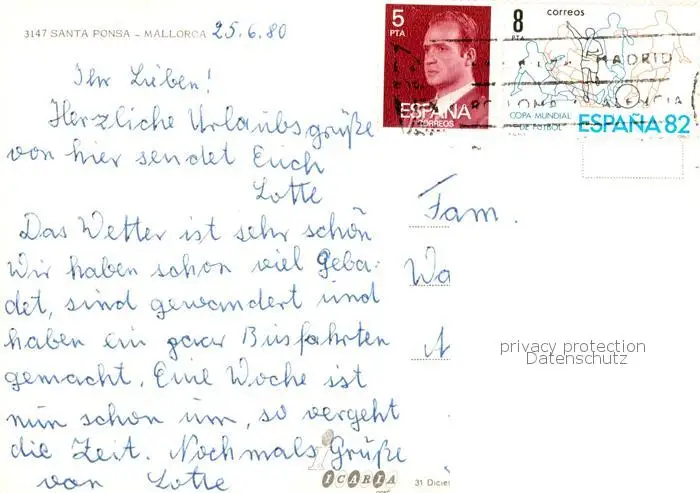 3147 SANTA PONSA - MALLORCA 25.6.80
Ihr Lieben!
Herzliche Urlaubsgrüße
von hier sendet Euch
Lotte
Das Wetter ist sehr schön
Wir haben schon viel geba-
det, sind gewandert und
haben ein paar Busfahrten
gemacht. Eine Woche ist
nun schon um, so vergeht
die Zeit. Nochmals Grüße
von Lotte
ICARIA
31 Dicie
5
PTA
ESPAÑA
CORREOS
8
PTA
correos
MADRID
COPA MUNDIAL
DE FUTBOL
ESPAÑA 82
Fam.
Wa
privacy protection
Datenschutz